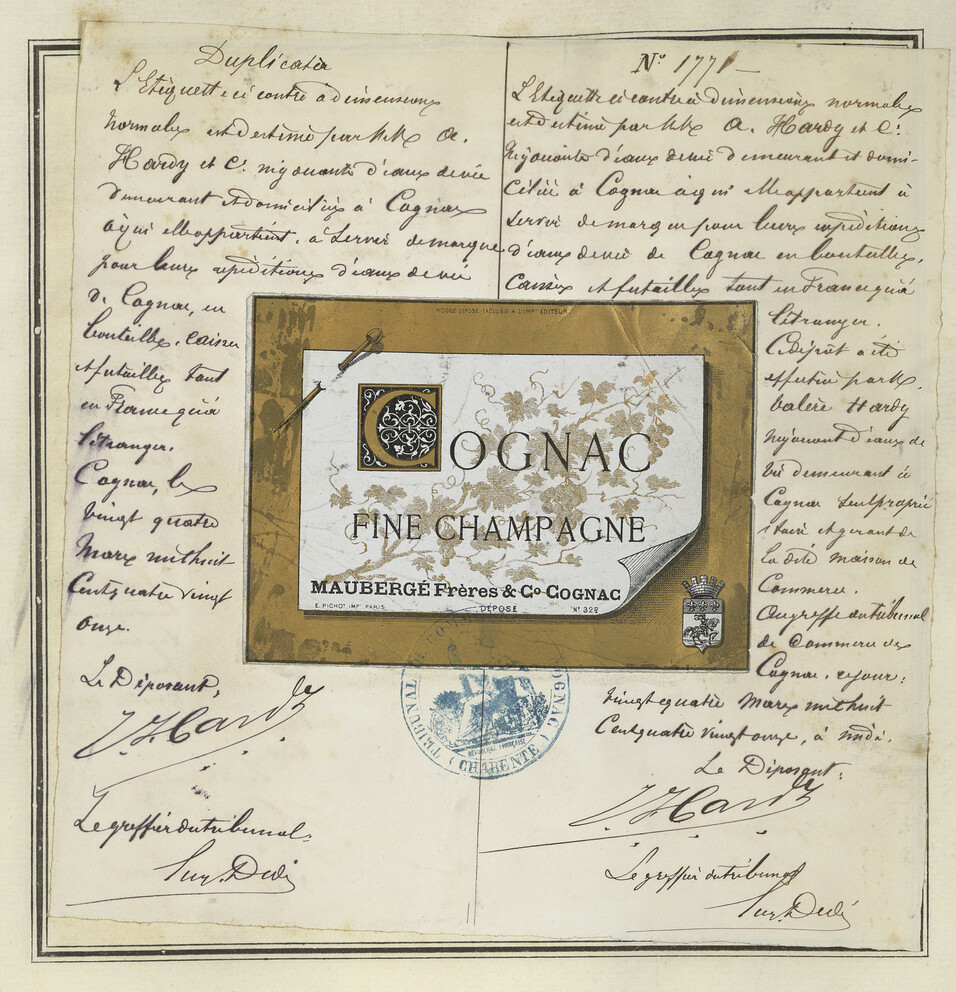 Duplicata
L'Etiquette ci contre à dimensions
normales est destinée par M.M. A.
Hardy et Cie négociants d'eaux de vie
demeurant et domiciliés à Cognac
à qui elle appartient, à servir de marque
pour leurs expéditions d'eaux de vie
de Cognac, en
bouteilles, caisses
et futailles tant
en France qu'à
l'étranger.
Cognac, le
vingt quatre
Mars mil huit
cent quatre vingt
onze.
Le Déposant,
Hardy
Le greffier du tribunal
N° 1771
L'Etiquette ci contre à dimensions normales
est destinée par M.M. A. Hardy et Cie
négociants d'eaux de vie demeurant et domi-
ciliés à Cognac à qui elle appartient à
servir de marque pour leurs expéditions
d'eaux de vie de Cognac en bouteilles,
caisses et futailles tant en France qu'à
l'étranger.
Ce dépôt a été
effectué par M.
Valère Hardy
négociant d'eaux de
vie demeurant à
Cognac seul proprié
taire et gérant de
la dite maison de
Commerce.
Au greffe du tribunal
de Commerce de
Cognac, ce jour:
vingt quatre Mars mil huit
Cent quatre vingt onze, à midi.
Le Déposant:
Hardy
Le greffier du tribunal
MODÈLE DÉPOSÉ EXCLUSIF A L'IMPR ÉDITEUR
COGNAC
FINE CHAMPAGNE
MAUBERGÉ Frères & Co COGNAC
E. PICHOT IMPR PARIS DÉPOSÉ N° 322
TRIBUNAL COGNAC
RÉPUBLIQUE FRANÇAISE
(CHARENTE)